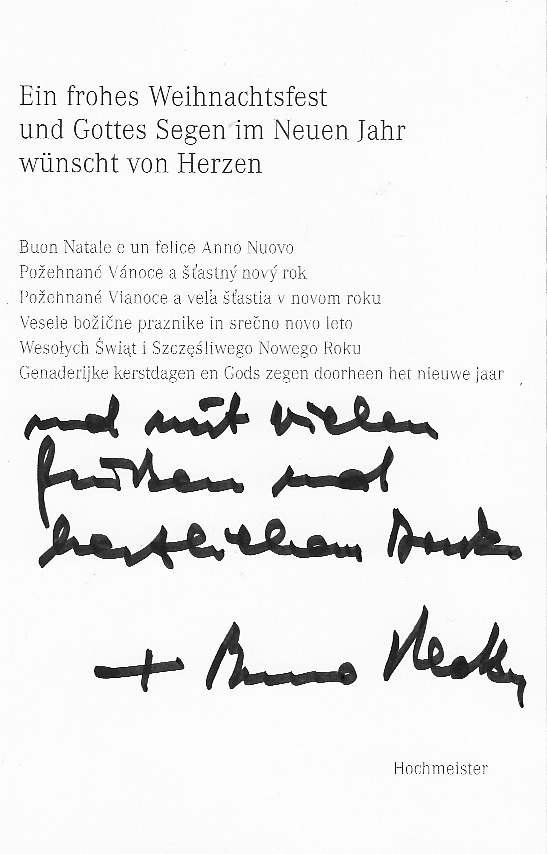 Ein frohes Weihnachtsfest
und Gottes Segen im Neuen Jahr
wünscht von Herzen
Buon Natale e un felice Anno Nuovo
Požehnané Vánoce a šťastný nový rok
Požehnané Vianoce a veľa šťastia v novom roku
Vesele božične praznike in srečno novo leto
Wesołych Świąt i Szczęśliwego Nowego Roku
Genaderijke kerstdagen en Gods zegen doorheen het nieuwe jaar
und mit vielen
Grüßen und
herzlichem Dank
+ Bruno Platter
Hochmeister